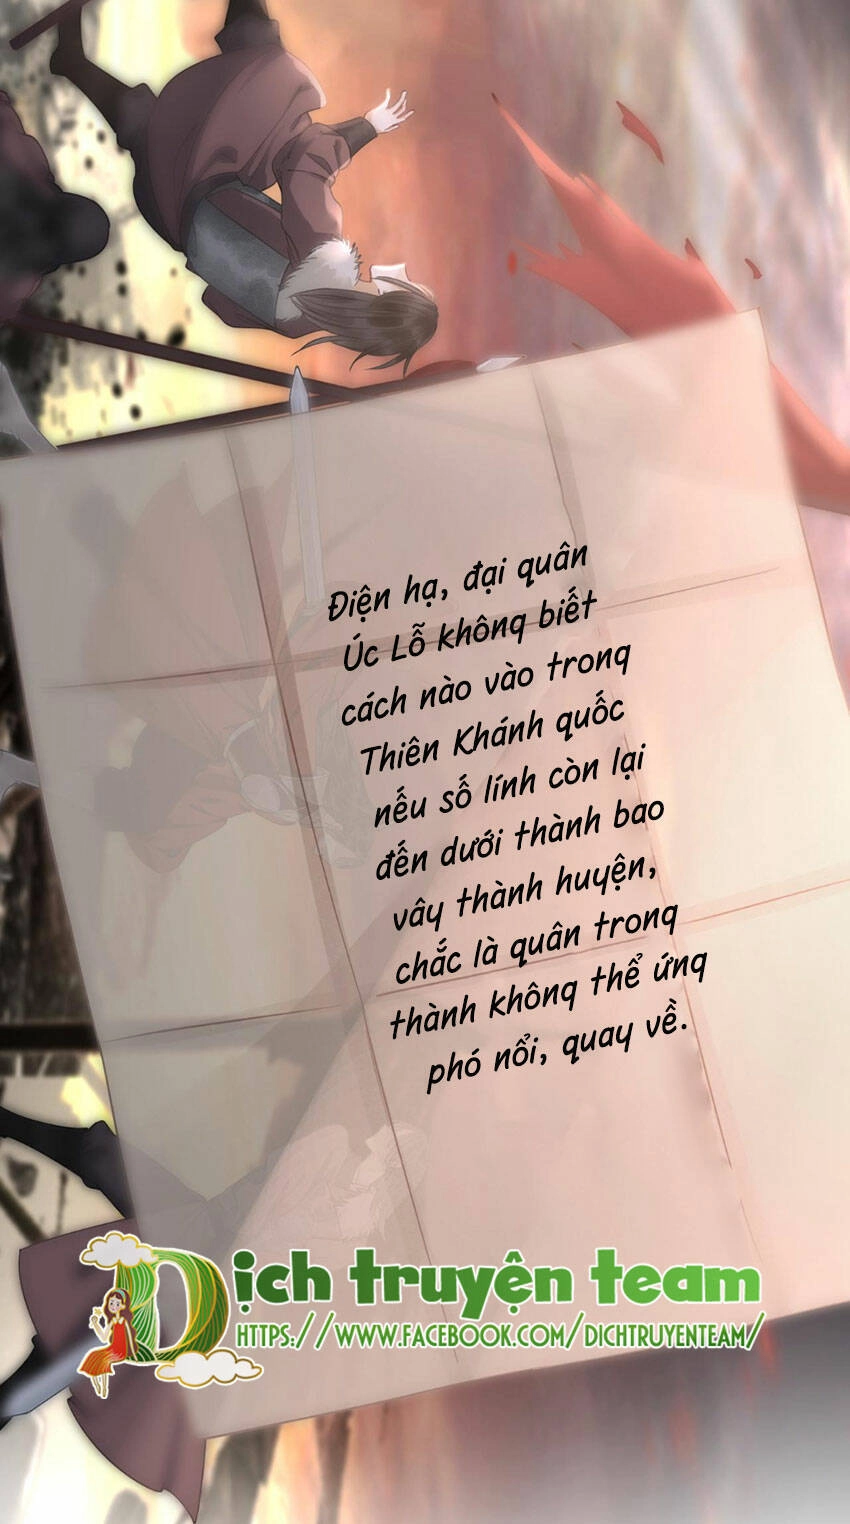 Điện hạ, đại quân
Úc Lỗ không biết
cách nào vào trong
Thiên Khánh quốc
nếu số lính còn lại
đến dưới thành bao
vây thành huyện,
chắc là quân trong
thành không thể ứng
phó nổi, quay về.
Dịch truyện team
HTTPS://WWW.FACEBOOK.COM/DICHTRUYENTEAM/